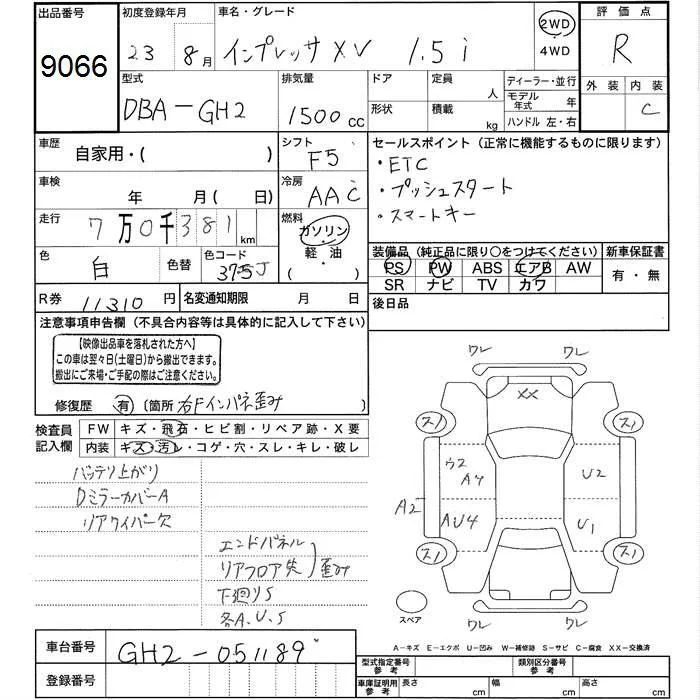 出品番号 9066
初度登録年月 23 8月
車名・グレード インプレッサXV 1.5i
2WD ・ 4WD
評価点 R
外装 内装 C
型式 DBA-GH2
排気量 1500cc
ドア 形状
定員 人
積載 kg
ディーラー・並行
モデル年式 年
ハンドル 左・右
車歴 自家用・( )
シフト F5
車検 年 月( 日)
冷房 AAC
走行 7万0千381km
燃料 ガソリン・軽油 ( )
色 白 色替 色コード 375J
R券 11310円
名変通知期限 月 日
セールスポイント(正常に機能するものに限ります)
・ETC
・プッシュスタート
・スマートキー
装備品(純正品に限り○をつけてください)
PS PW ABS エアB AW
SR ナビ TV カワ
新車保証書 有・無
後日品
注意事項申告欄(不具合内容等は具体的に記入して下さい)
【映像出品車を落札された方へ】
この車は翌々日(土曜日)から搬出できます。
搬出にご来場・ご手配の際はご注意ください。
修復歴 有(箇所 右Fインパネ歪み )
検査員記入欄
FW キズ・飛石・ヒビ割・リペア跡・X要
内装 キズ・汚レ・コゲ・穴・スレ・キレ・破レ
バッテリ上がり
DミラーカバーA
リアワイパー欠
エンドパネル
リアフロア先 歪み
下廻りS
各A.U.S
ワレ ワレ
XX
スノ スノ
ウス AY U2
A2 AU4 U1
スノ スノ
ワレ ワレ
スペア
A-キズ E-エクボ U-凹み W-補修跡 S-サビ C-腐食 XX-交換済
車台番号 GH2-051189
登録番号
型式指定番号 参考
類別区分番号 参考
車庫証明用 参考 長さ cm 幅 cm 高さ cm